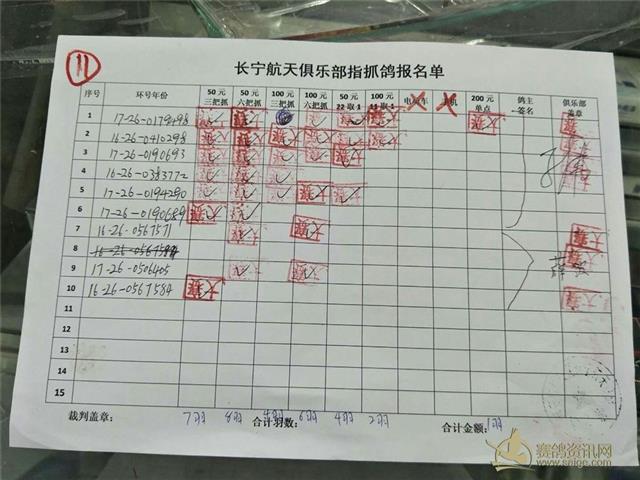 11
长宁航天俱乐部指抓鸽报名单
序号 环号年份 50元三把抓 50元六把抓 100元三把抓 100元六把抓 50元22取1 100元11取1 200元单点 鸽主签名 俱乐部盖章
1 17-26-0179498
2 16-26-0410298
3 17-26-0190693
4 16-26-0383772
5 17-26-0194290
6 17-26-0190689
7 16-26-0567571
8
9 17-26-0506405
10 16-26-0567584
11
12
13
14
15
裁判盖章： 7羽 8羽 合计羽数： 6羽 4羽 2羽 合计金额： 1羽
赛鸽资讯网
www.saige.com